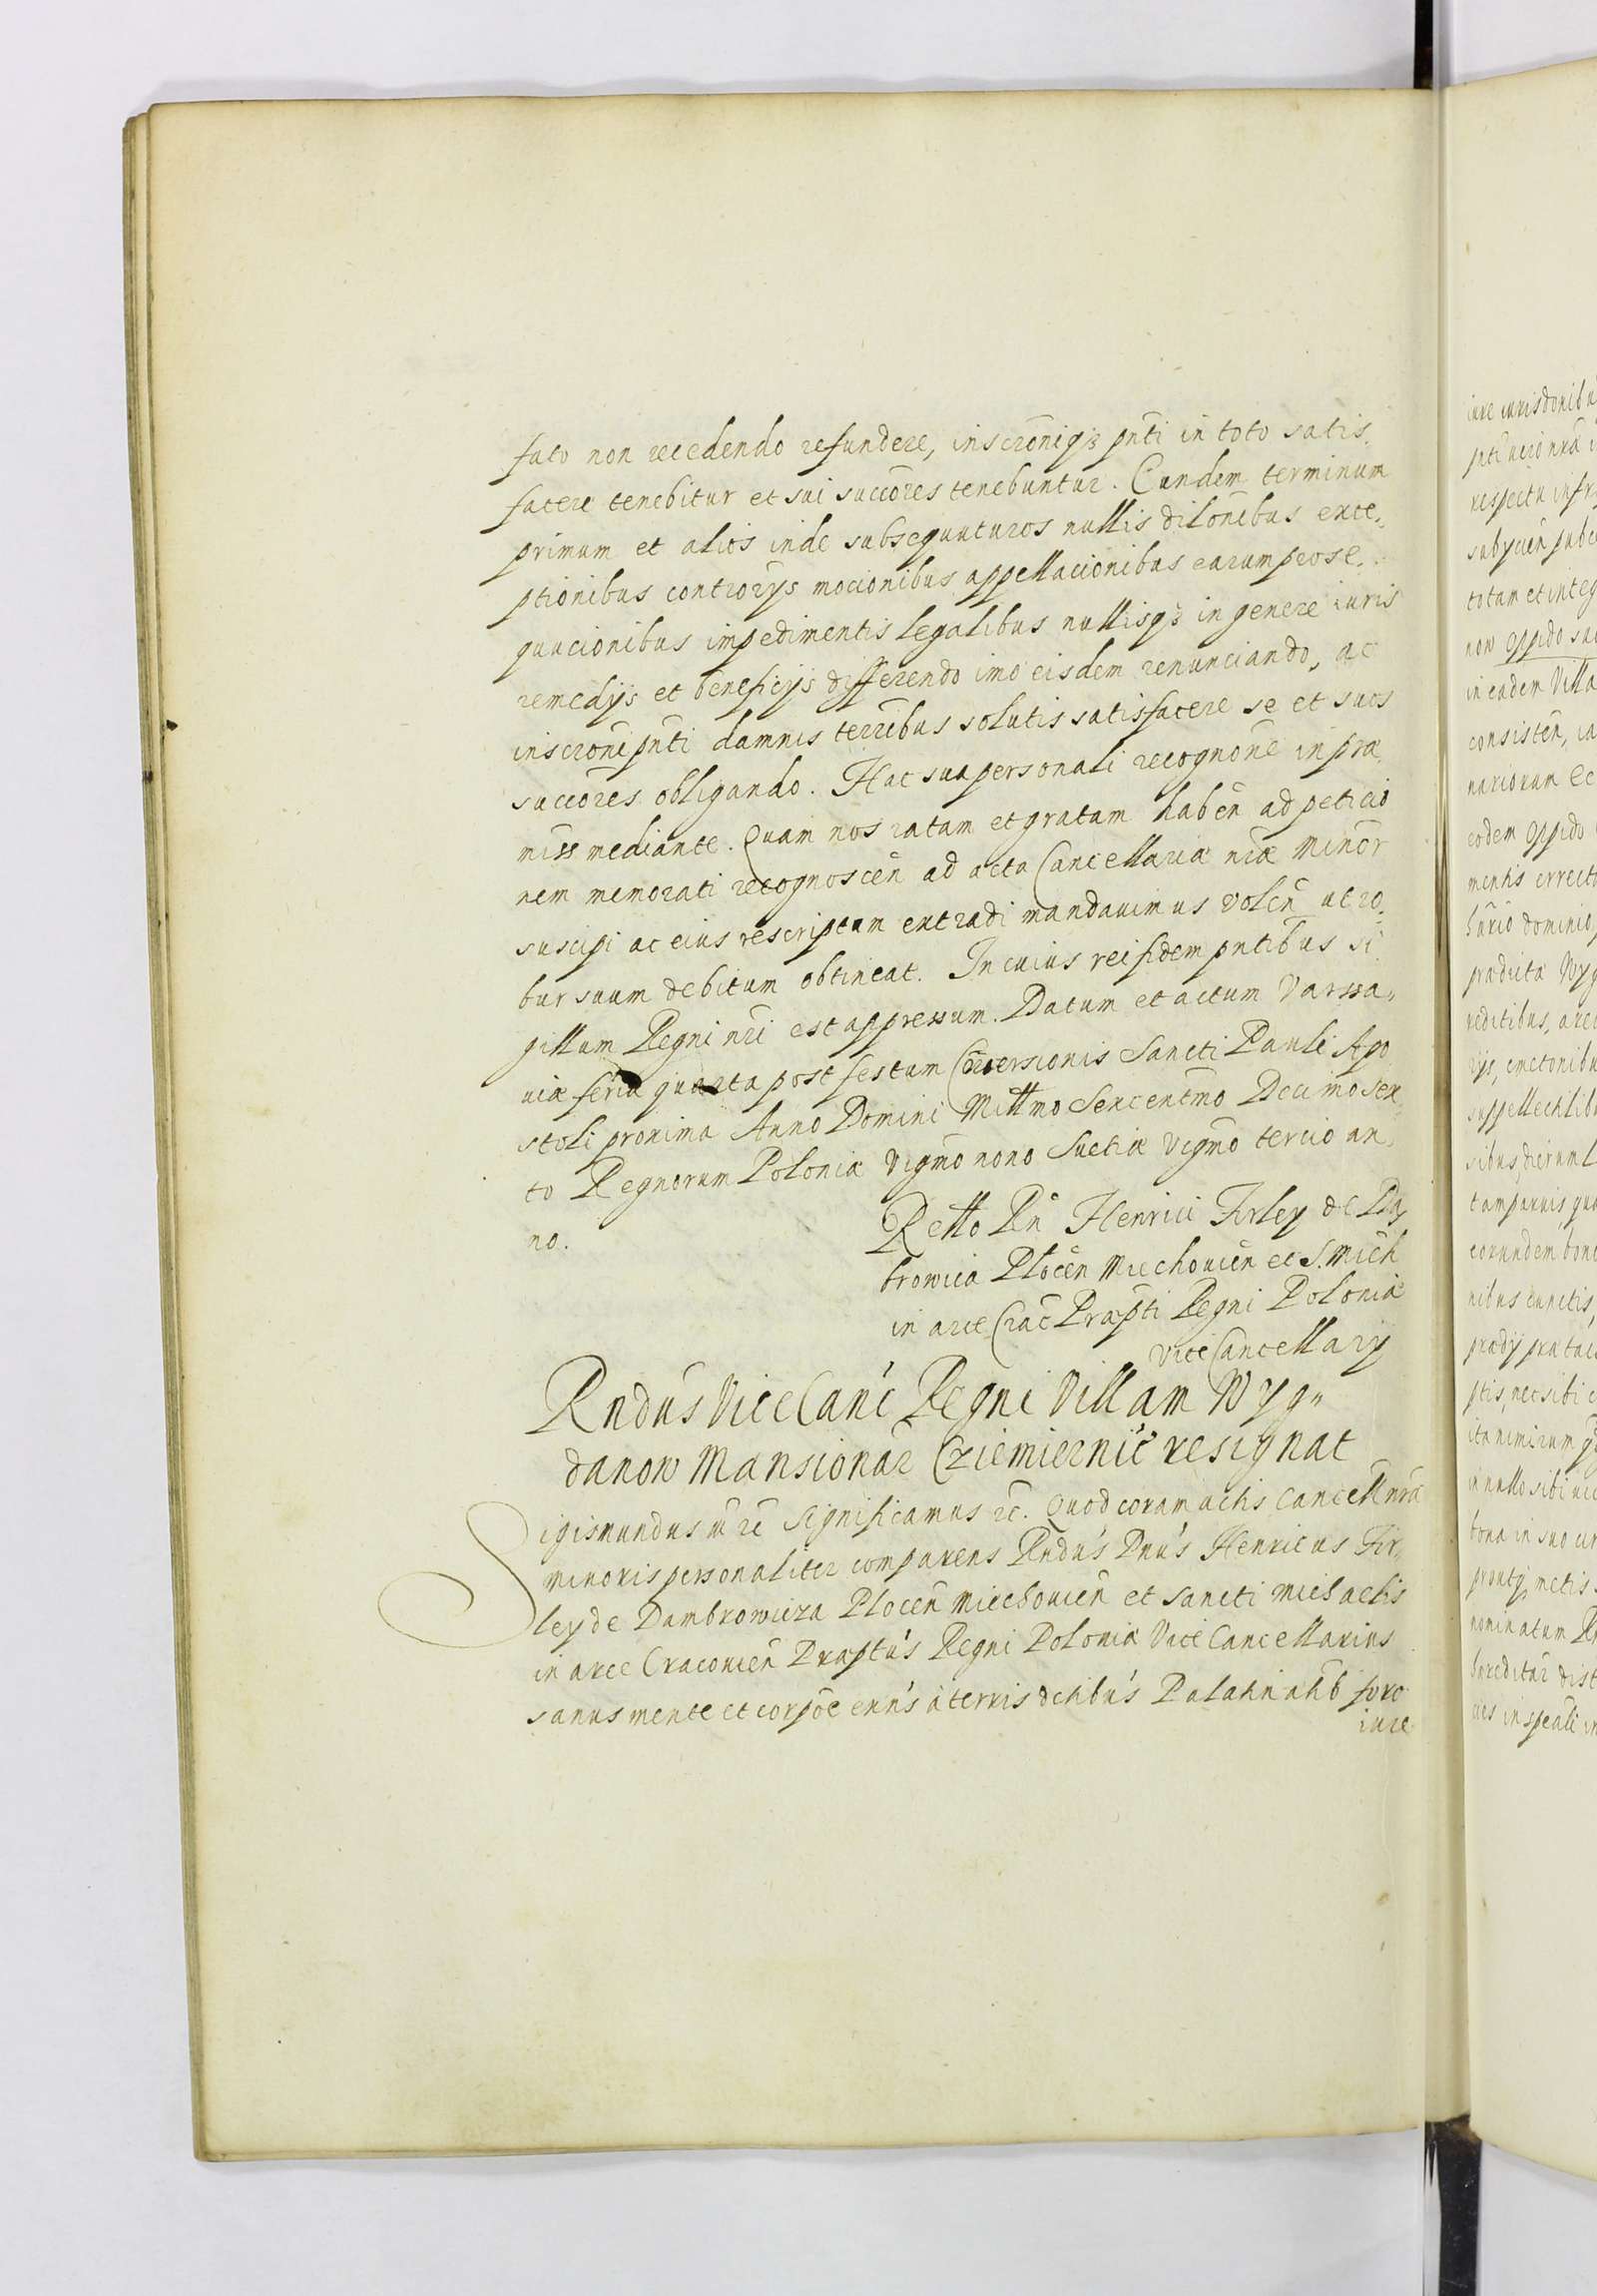 fato non recedendo refundere, inscrōniqȝ pn̄ti in toto satis,
facere tenebitur et sui succōres tenebuntur. Eundem terminum
primum et alios inde subsequuturos nullis dilōnibus exce,
ptionibus controrijs mocionibus appellacionibus earum prose,
quucionibus impedimentis legalibus nullisqȝ in genere iuris
remedijs et beneficijs differendo imo eisdem renunciando, ac
inscrōne pn̄ti damnis terr̄ibus solutis satisfacere se et suos
succōres obligando. Hac sua personali recognōne in præ
miss mediante. Quam nos ratam et gratam habēn ad peticio
nem memorati recognoscēn ad acta Cancellariæ nr̄æ Minōr
suscipi ac eius rescriptum extradi mandauimus volēn ut ro,
bur suum debitum obtineat. In cuius rei fidem pn̄tibus si
gillum Regni nr̄i est appressum. Datum et actum Varssa,
uiæ feria quarta post festum Conversionis Sancti Pauli Apo
stoli proxima Anno Domini Millmo Sexcentm̄o Decimosex,
to Regnorum Poloniæ Vigm̄o nono Suetiæ Vigm̄o tercio an,
no.
Retto Rn̄ Henrici Firley de Da,
browica Plocēn Miechouiēn et S. Mich
in arce Crac̄ Præpt̄i Regni Poloniæ
ViceCancellarij
Rndūs ViceCanc̄ Regni Villam Wyg,,
danow Mansionar̄ Cziemiernic̄ resignat
Sigismundus m̄ rc̄ Significamus rc̄. Quod coram actis Cancell nr̄æ
minoris personaliter comparens Rndūs Dnūs Henricus Fir,
ley de Dambrowicza Plocēn Miechouiēn et Sancti Michaelis
in arce Cracouiēn Præptūs Regni Poloniæ ViceCancellarius
sanus mente et corpōe exn̄s à terris dctibūs Palatinatib foro
iure
iure iurisdonibu
respectu infr
totam et integ
now oppido su
in eadem Villa
consistēn, ca
nariorum Ec
eodem oppido
mentis errect
dominio,
prædicta Wyg
reditibus, are
rijs, cmetonibu
suppellectilibu
tamparuis qua
eorundem bono
nibus cunctis,
ptis, nec sibi
ita nimirum
in nullo sibi
bona in suo
nominatum Rn